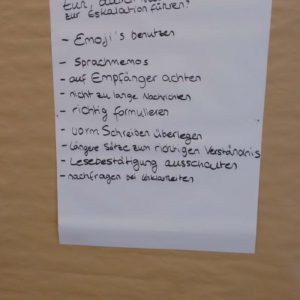 zur Eskalation führen?
- Emoji's benutzen
- Sprachmemos
- auf Empfänger achten
- nicht zu lange Nachrichten
- richtig formulieren
- vorm Schreiben überlegen
- längere Sätze zum richtigen Verständnis
- Lesebestätigung ausschalten
- nachfragen bei Unklarheiten